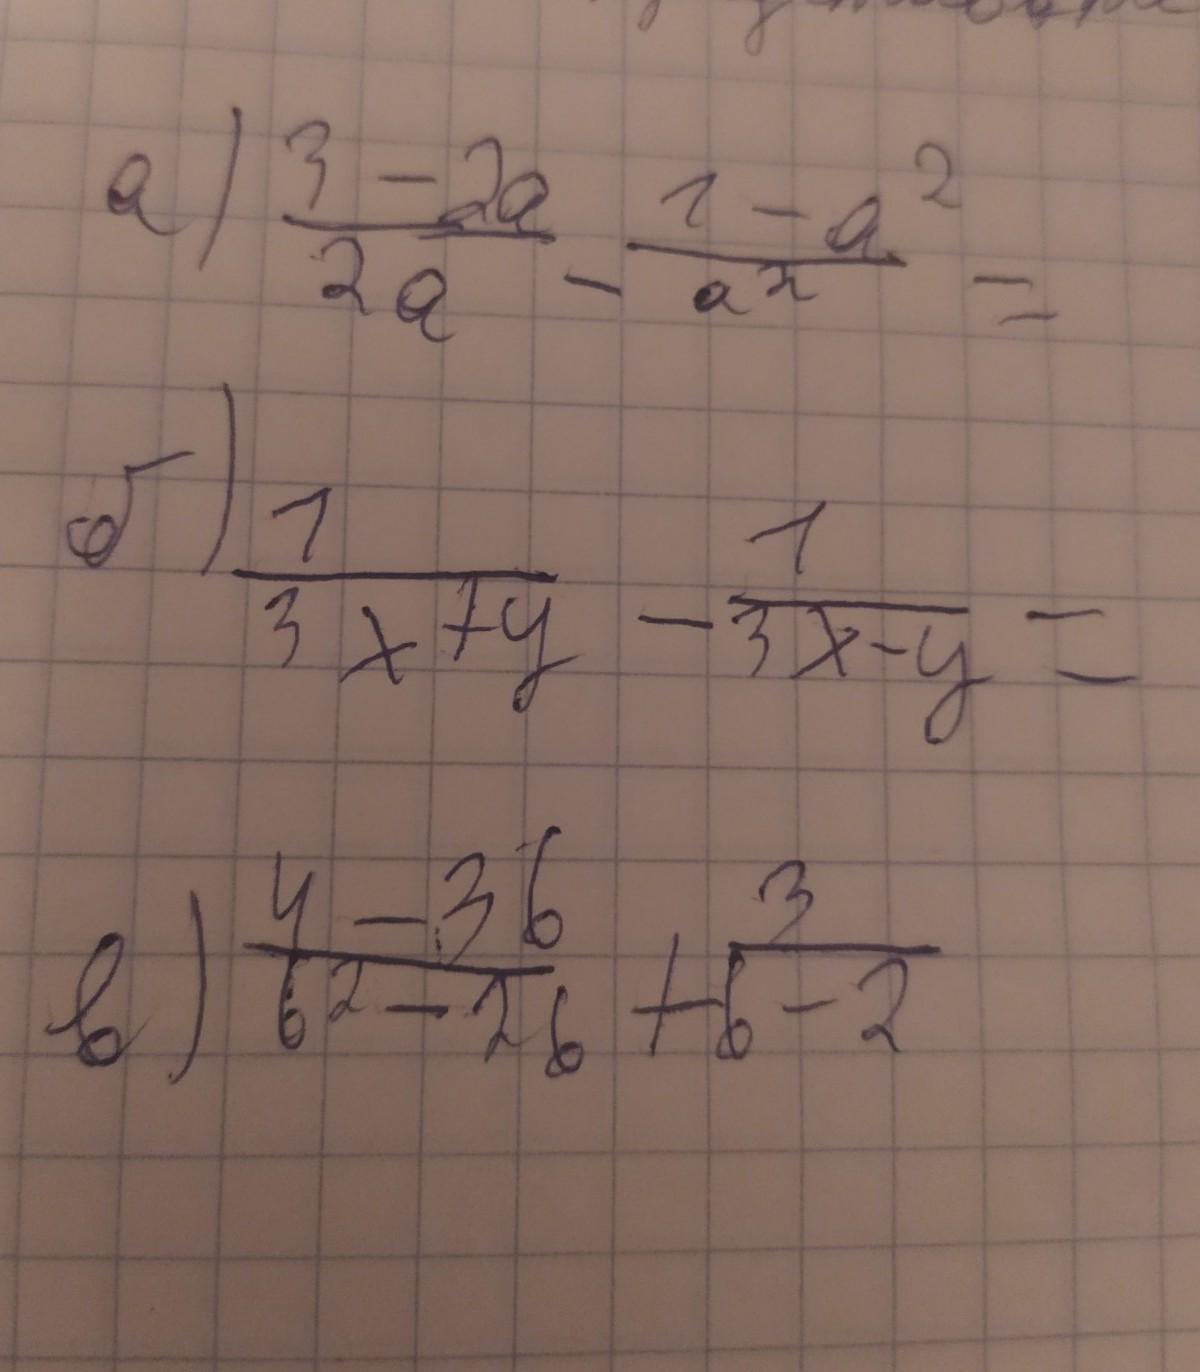 а) 3 - 2a / 2a - 1 - a² / a² =
б) 1 / 3x + y - 1 / 3x - y =
в) 4 - 3b / b² - 2b + 3 / b - 2